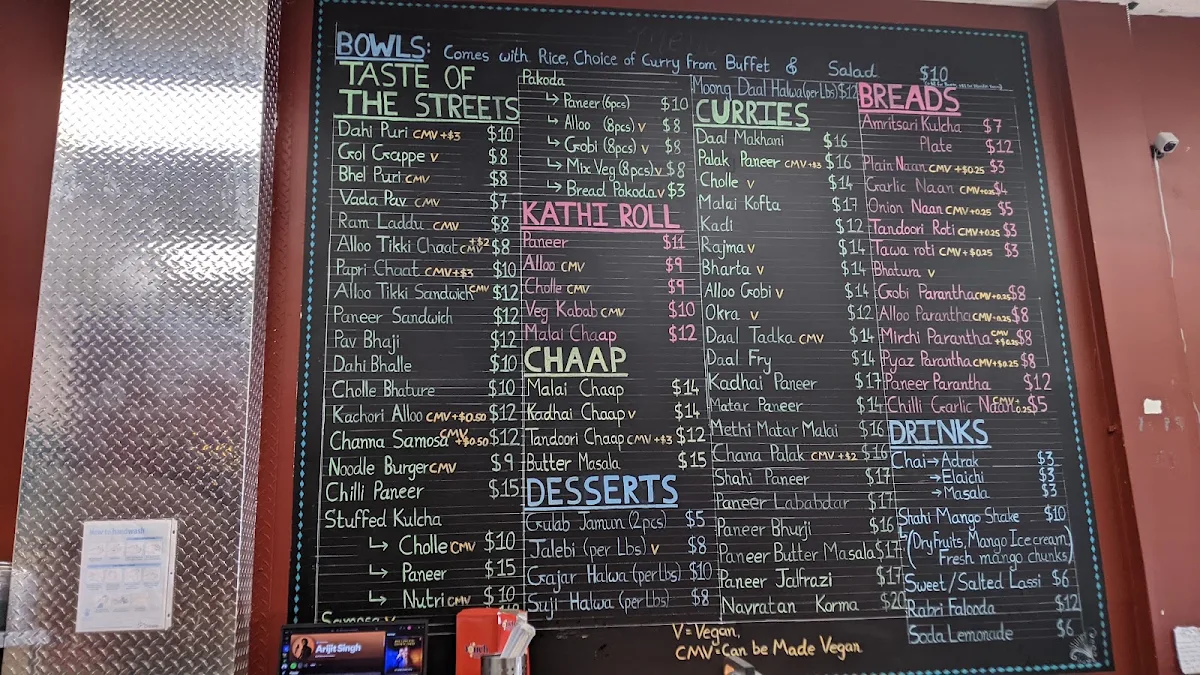 BOWLS: Comes with Rice, Choice of Curry from Buffet & Salad $10
TASTE OF
THE STREETS
Dahi Puri CMV +$3 $10
Gol Grappe V $8
Bhel Puri CMV $8
Vada Pav CMV $7
Ram Laddu CMV $8
Alloo Tikki Chaat CMV +$2 $8
Papri Chaat CMV +$3 $10
Alloo Tikki Sandwich CMV $12
Paneer Sandwich $12
Pav Bhaji $12
Dahi Bhalle $10
Cholle Bhature $10
Kachori Alloo CMV +$0.50 $12
Channa Samosa CMV +$0.50 $12
Noodle Burger CMV $9
Chilli Paneer $15
Stuffed Kulcha
↳ Cholle CMV $10
↳ Paneer $15
↳ Nutri CMV $10
Samosa V
Pakoda
↳ Paneer (6pcs) $10
↳ Alloo (8pcs) V $8
↳ Gobi (8pcs) V $8
↳ Mix Veg (8pcs) V $8
↳ Bread Pakoda V $3
KATHI ROLL
Paneer $11
Alloo CMV $9
Cholle CMV $9
Veg Kabab CMV $10
Malai Chaap $12
CHAAP
Malai Chaap $14
Kadhai Chaap V $14
Tandoori Chaap CMV +$3 $12
Butter Masala $15
DESSERTS
Gulab Jamun (2pcs) $5
Jalebi (per Lbs) V $8
Gajar Halwa (per lbs) $10
Suji Halwa (per lbs) $8
Moong Daal Halwa (per Lbs) $12
CURRIES
Daal Makhani $16
Palak Paneer CMV +$3 $16
Cholle V $14
Malai Kofta $17
Kadi $12
Rajma V $14
Bharta V $14
Alloo Gobi V $14
Okra V $12
Daal Tadka CMV $14
Daal Fry $14
Kadhai Paneer $17
Matar Paneer $14
Methi Matar Malai $16
Chana Palak CMV +$2 $16
Shahi Paneer $17
Paneer Lababdar $17
Paneer Bhurji $16
Paneer Butter Masala $17
Paneer Jalfrazi $17
Navratan Korma $20
BREADS
Amritsari Kulcha $7
Plate $12
Plain Naan CMV +$0.25 $3
Garlic Naan CMV +0.25 $4
Onion Naan CMV +0.25 $5
Tandoori Roti CMV +0.25 $3
Tawa roti CMV +$0.25 $3
Bhatura V
Gobi Parantha CMV +0.25 $8
Alloo Parantha CMV +0.25 $8
Mirchi Parantha CMV +$0.25 $8
Pyaz Parantha CMV +$0.25 $8
Paneer Parantha $12
Chilli Garlic Naan CMV + 0.25 $5
DRINKS
Chai → Adrak $3
→ Elaichi $3
→ Masala $3
Shahi Mango Shake $10
↳ (Dry Fruits, Mango Ice cream,
Fresh mango chunks)
Sweet/Salted Lassi $6
Rabri Falooda $12
Soda Lemonade $6
V = Vegan,
CMV = Can be Made Vegan
Arijit Singh